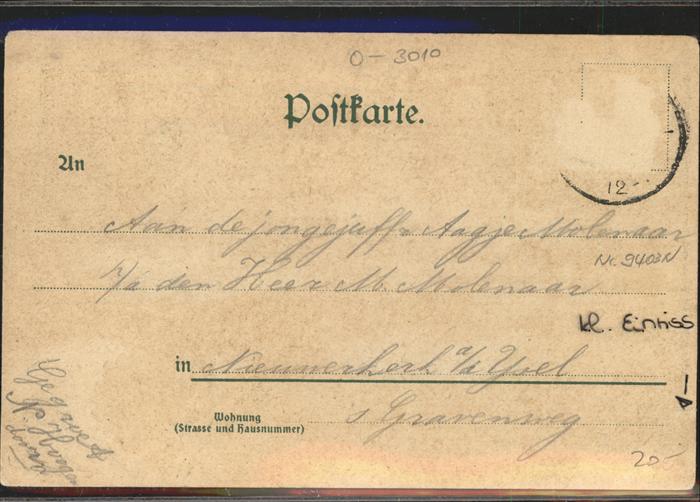 O-3010
Postkarte.
12
An
Aan de jongejuffr Aagje Molenaar
Nr. 9403N
p/a den Heer M. Molenaar
kl. Einriss
in Nieuwerkerk a/d Yssel
Wohnung
(Strasse und Hausnummer)
s Gravenweg
Gegroet
20-